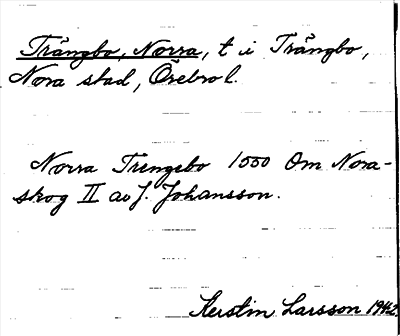 Trångbo, Norra, t i Trångbo,
Nora stad, Örebro l.
Norra Trengebo 1550 Om Nora-
skog II av J. Johansson.
Kerstin Larsson 1942.